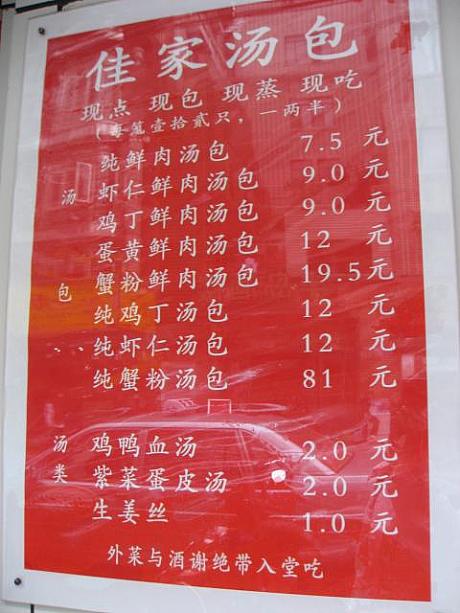 佳家汤包
现点 现包 现蒸 现吃
(每笼壹拾贰只，一两半)
汤包
纯鲜肉汤包 7.5 元
虾仁鲜肉汤包 9.0 元
鸡丁鲜肉汤包 9.0 元
蛋黄鲜肉汤包 12 元
蟹粉鲜肉汤包 19.5元
纯鸡丁汤包 12 元
纯虾仁汤包 12 元
纯蟹粉汤包 81 元
汤类
鸡鸭血汤 2.0 元
紫菜蛋皮汤 2.0 元
生姜丝 1.0 元
外菜与酒谢绝带入堂吃